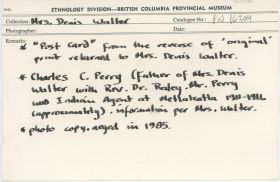 ETHNOLOGY DIVISION—BRITISH COLUMBIA PROVINCIAL MUSEUM
Collection: Mrs. Denis Waller Catalogue No.: PN 16304
Photographer: Date:
Remarks:
* "Post Card" from the reverse of 'original'
print returned to Mrs. Denis Waller.
* Charles C. Perry (father of Mrs. Denis
Waller with Rev. Dr. Raley. Mr. Perry
was Indian Agent at Metlakatla 1911-1916
(approximately). information per Mrs. Waller.
* photo copy. neg.d in 1985.